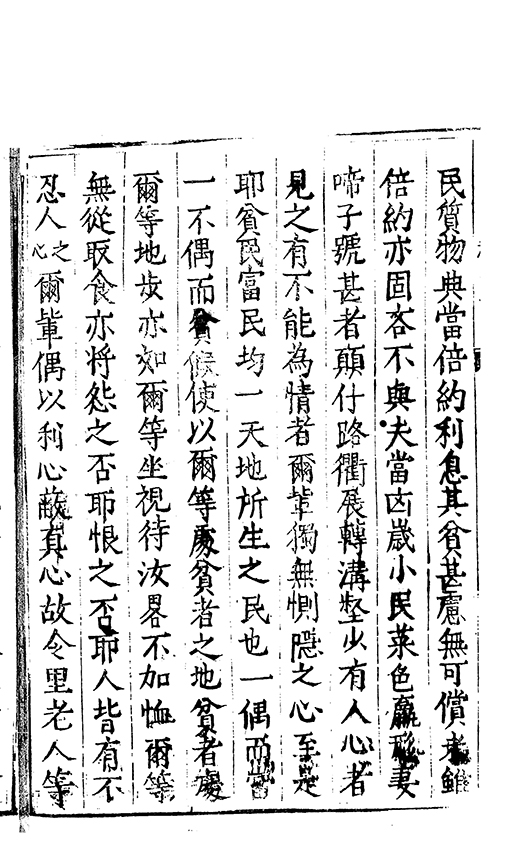 民質物典當倍約利息其貧甚慮無可償者雖
倍約亦固吝不與夫當凶歲小民菜色羸形妻
啼子號甚者顛仆路衢展轉溝壑少有人心者
見之有不能為情者爾輩獨無惻隱之心至是
耶貧民富民均一天地所生之民也一偶而富
一不偶而貧假使以爾等處貧者之地貧者處
爾等地步亦如爾等坐視待汝畧不加恤爾等
無從取食亦將怨之否耶恨之否耶人皆有不
忍人之心爾輩偶以利心蔽真心故令里老人等